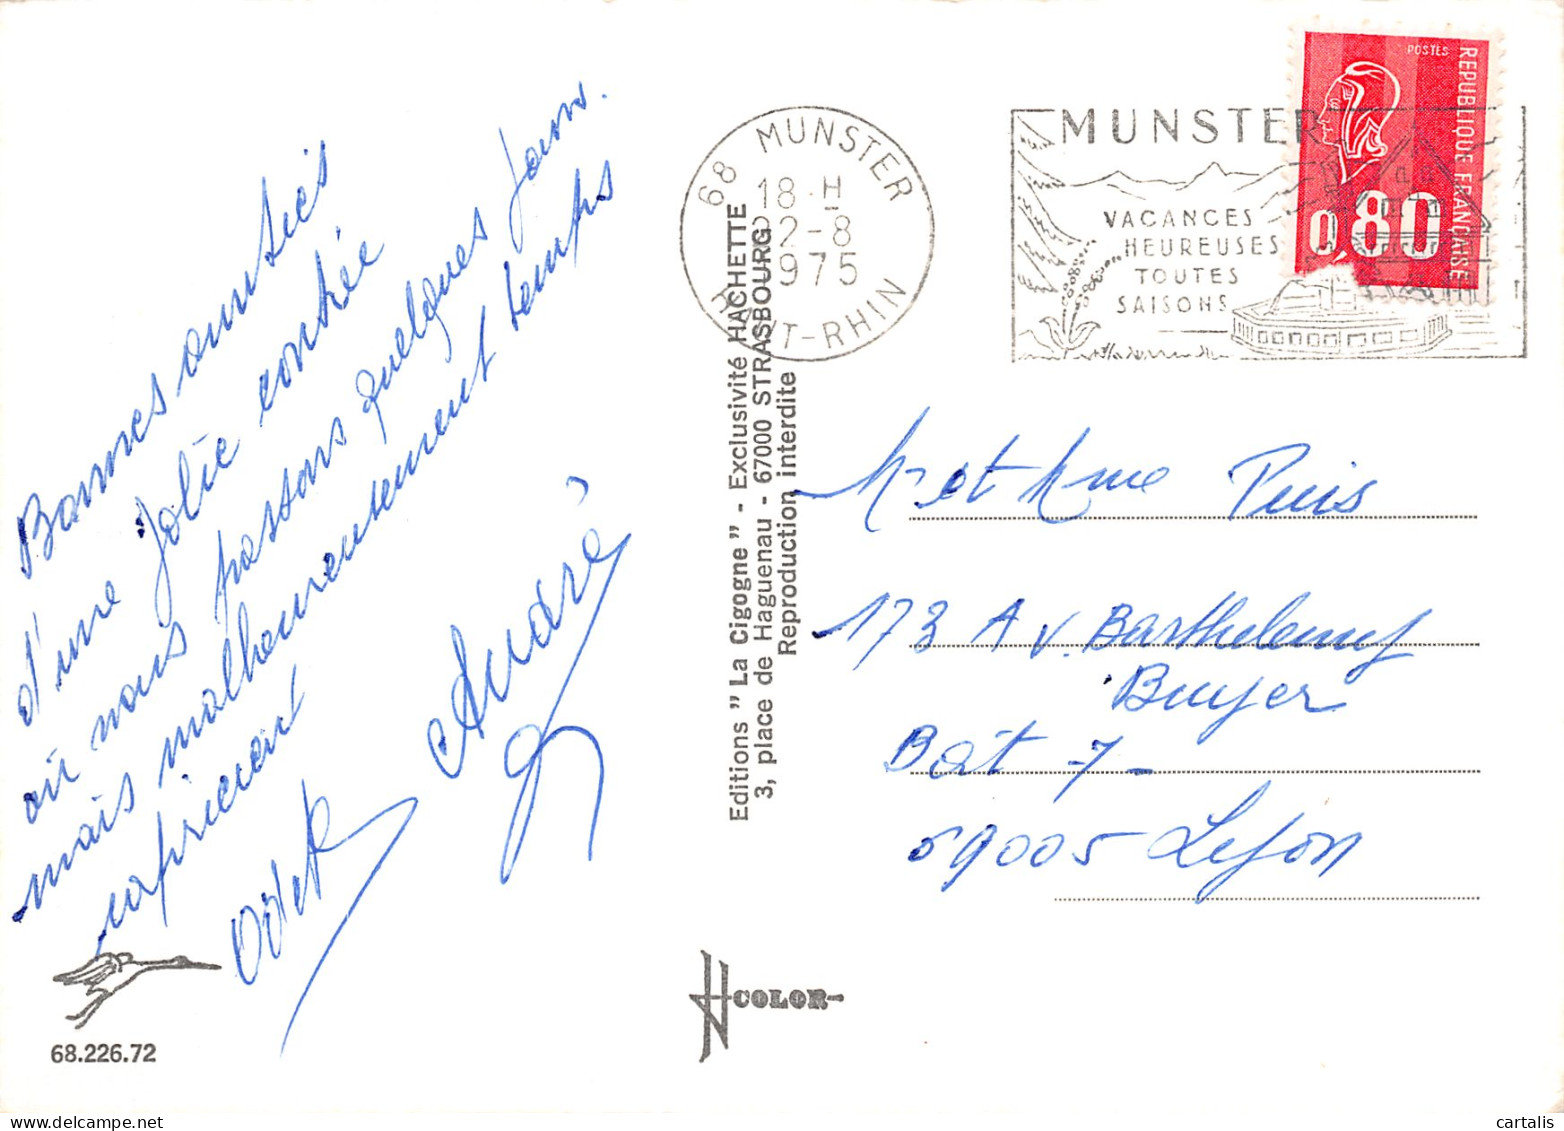 Bonnes amitiés
d'une jolie contrée
où nous passons quelques jours.
mais malheureusement temps
capricieux
Odette André
68.226.72
Editions "La Cigogne" - Exclusivité HACHETTE
3, place de Haguenau - 67000 STRASBOURG
Reproduction interdite
COLOR
68 MUNSTER
18 H
22-8
1975
HAUT-RHIN
MUNSTER
VACANCES
HEUREUSES
TOUTES
SAISONS
POSTES
REPUBLIQUE FRANÇAISE
0,80
M et Mme Puis
173 Av. Barthelemy
Buyer
Bat 7
69005 Lyon
cartalis